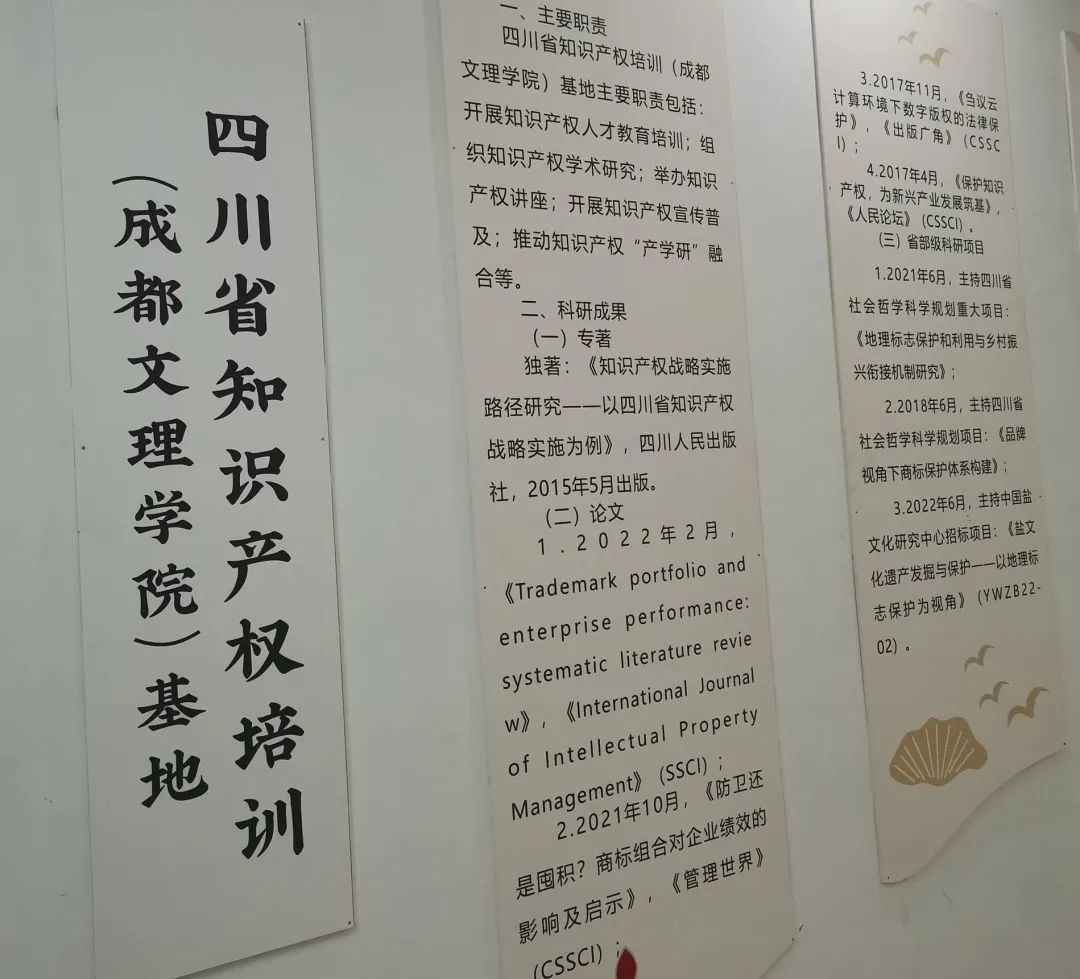 四川省知识产权培训
（成都文理学院）基地
一、主要职责
四川省知识产权培训（成都
文理学院）基地主要职责包括：
开展知识产权人才教育培训；组
织知识产权学术研究；举办知识
产权讲座；开展知识产权宣传普
及；推动知识产权“产学研”融
合等。
二、科研成果
（一）专著
独著：《知识产权战略实施
路径研究——以四川省知识产权
战略实施为例》，四川人民出版
社，2015年5月出版。
（二）论文
1.2022年2月，
《Trademark portfolio and
enterprise performance:
systematic literature revie
w》，《International Journal
of Intellectual Property
Management》（SSCI）；
2.2021年10月，《防卫还
是囤积？商标组合对企业绩效的
影响及启示》，《管理世界》
（CSSCI）；
3.2017年11月，《刍议云
计算环境下数字版权的法律保
护》，《出版广角》（CSSC
I）；
4.2017年4月，《保护知识
产权，为新兴产业发展筑基》，
《人民论坛》（CSSCI）。
（三）省部级科研项目
1.2021年6月，主持四川省
社会哲学科学规划重大项目：
《地理标志保护和利用与乡村振
兴衔接机制研究》；
2.2018年6月，主持四川省
社会哲学科学规划项目：《品牌
视角下商标保护体系构建》；
3.2022年6月，主持中国盐
文化研究中心招标项目：《盐文
化遗产发掘与保护——以地理标
志保护为视角》（YWZB22-
02）。